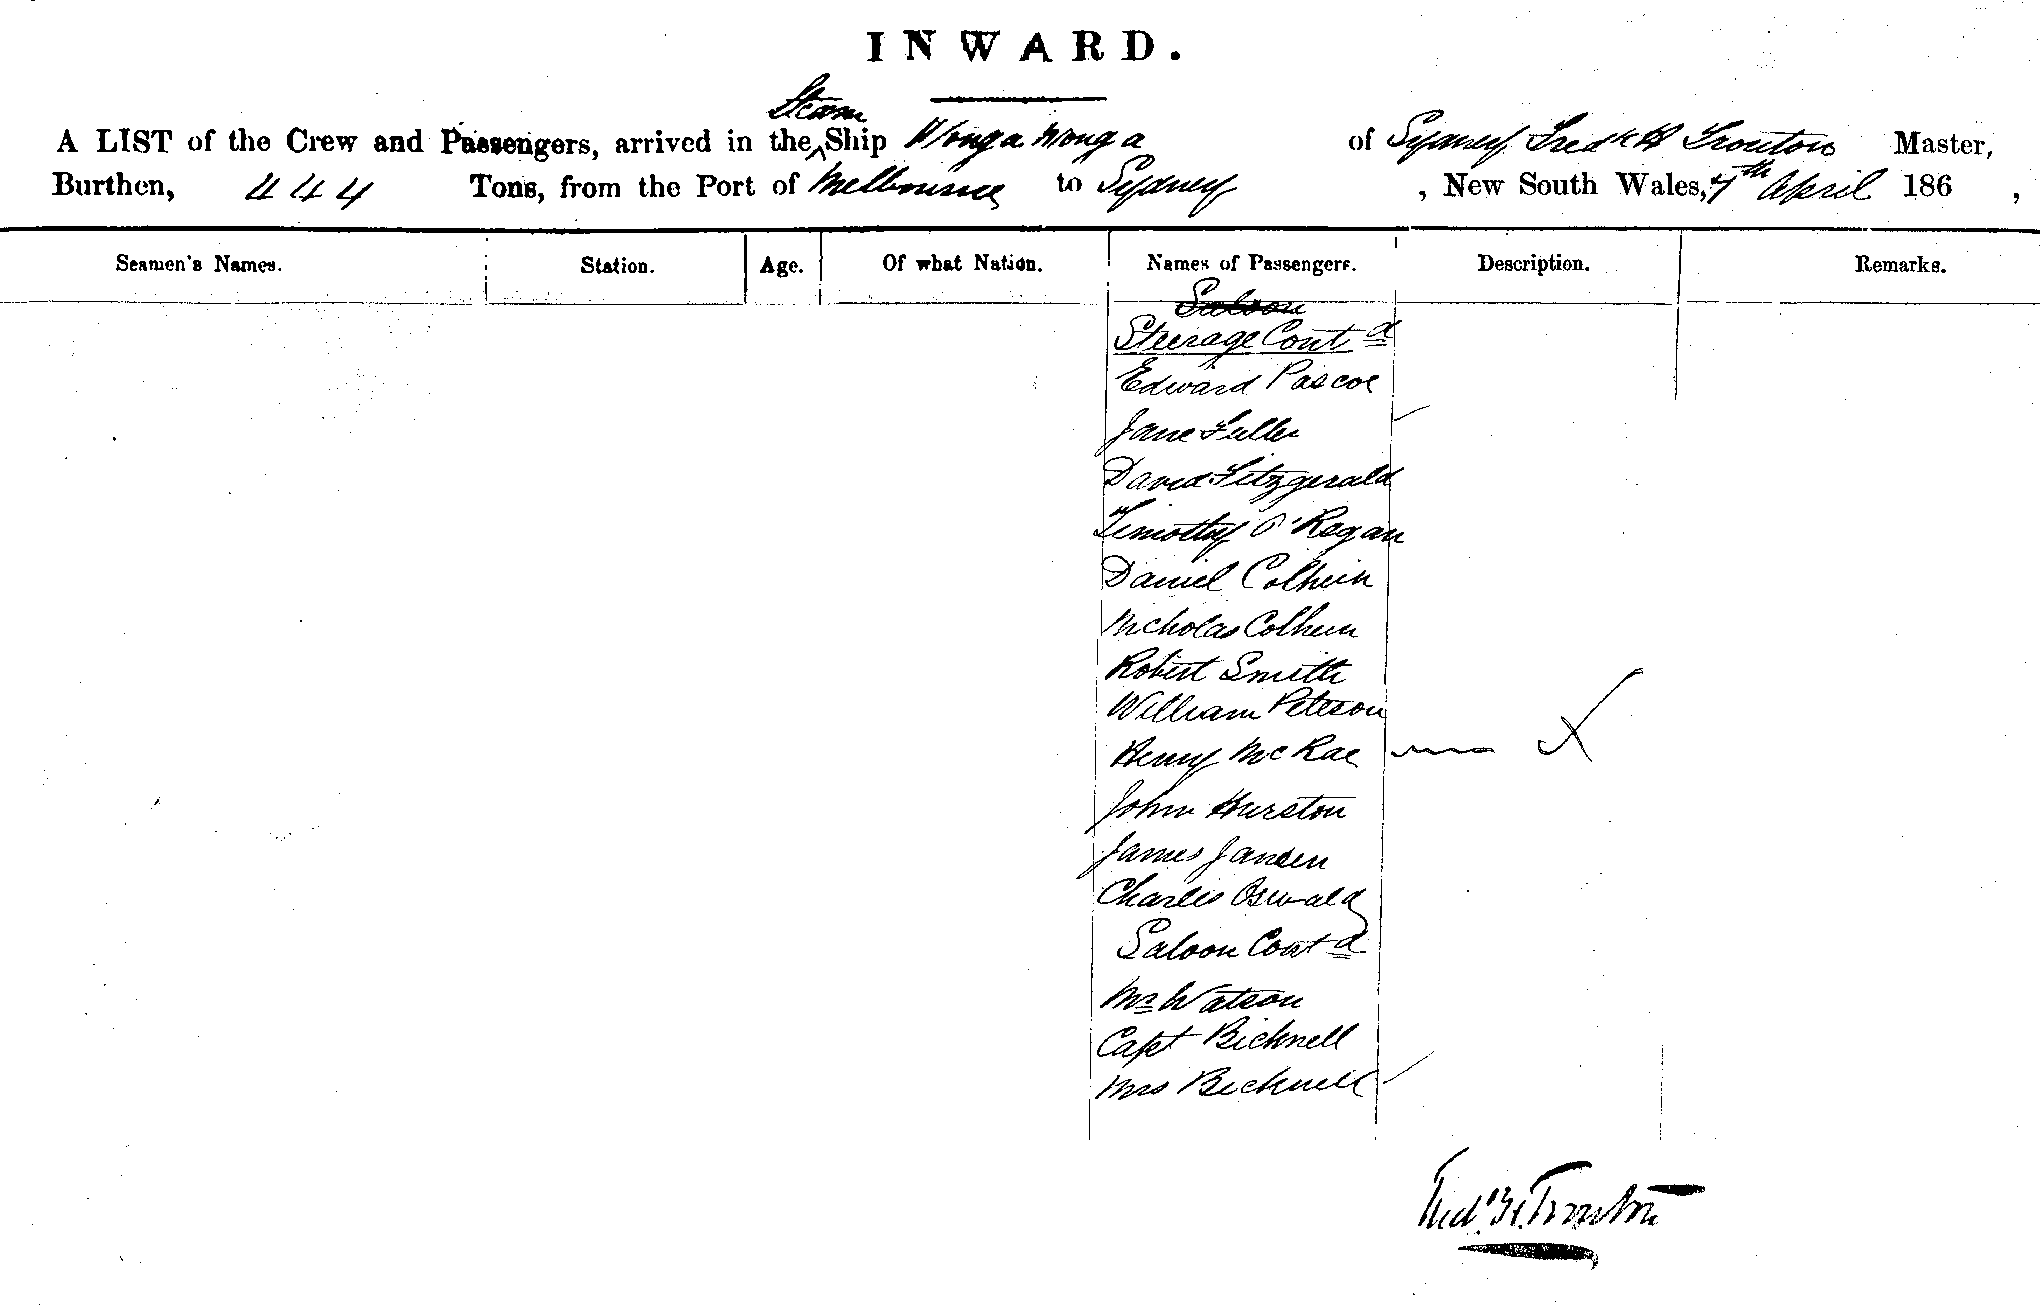 INWARD.
Steam
A LIST of the Crew and Passengers, arrived in the Ship Wonga Wonga of Sydney Fredk H Trouton Master,
Burthen, 444 Tons, from the Port of Melbourne to Sydney , New South Wales, 7th April 186 ,
Seamen's Names. Station. Age. Of what Nation. Names of Passengers. Description. Remarks.
Saloon
Steerage Contd
Edward Pascoe
Jane Fuller
David Fitzgerald
Timothy O'Regan
Daniel Colhein
Nicholas Colhein
Robert Smith
William Peterson
Henry McRae
John Hurston
James Jansen
Charles Oswald
Saloon Contd
Mr Watson
Capt Bicknell
Mrs Bicknell
Fredk H. Trouton